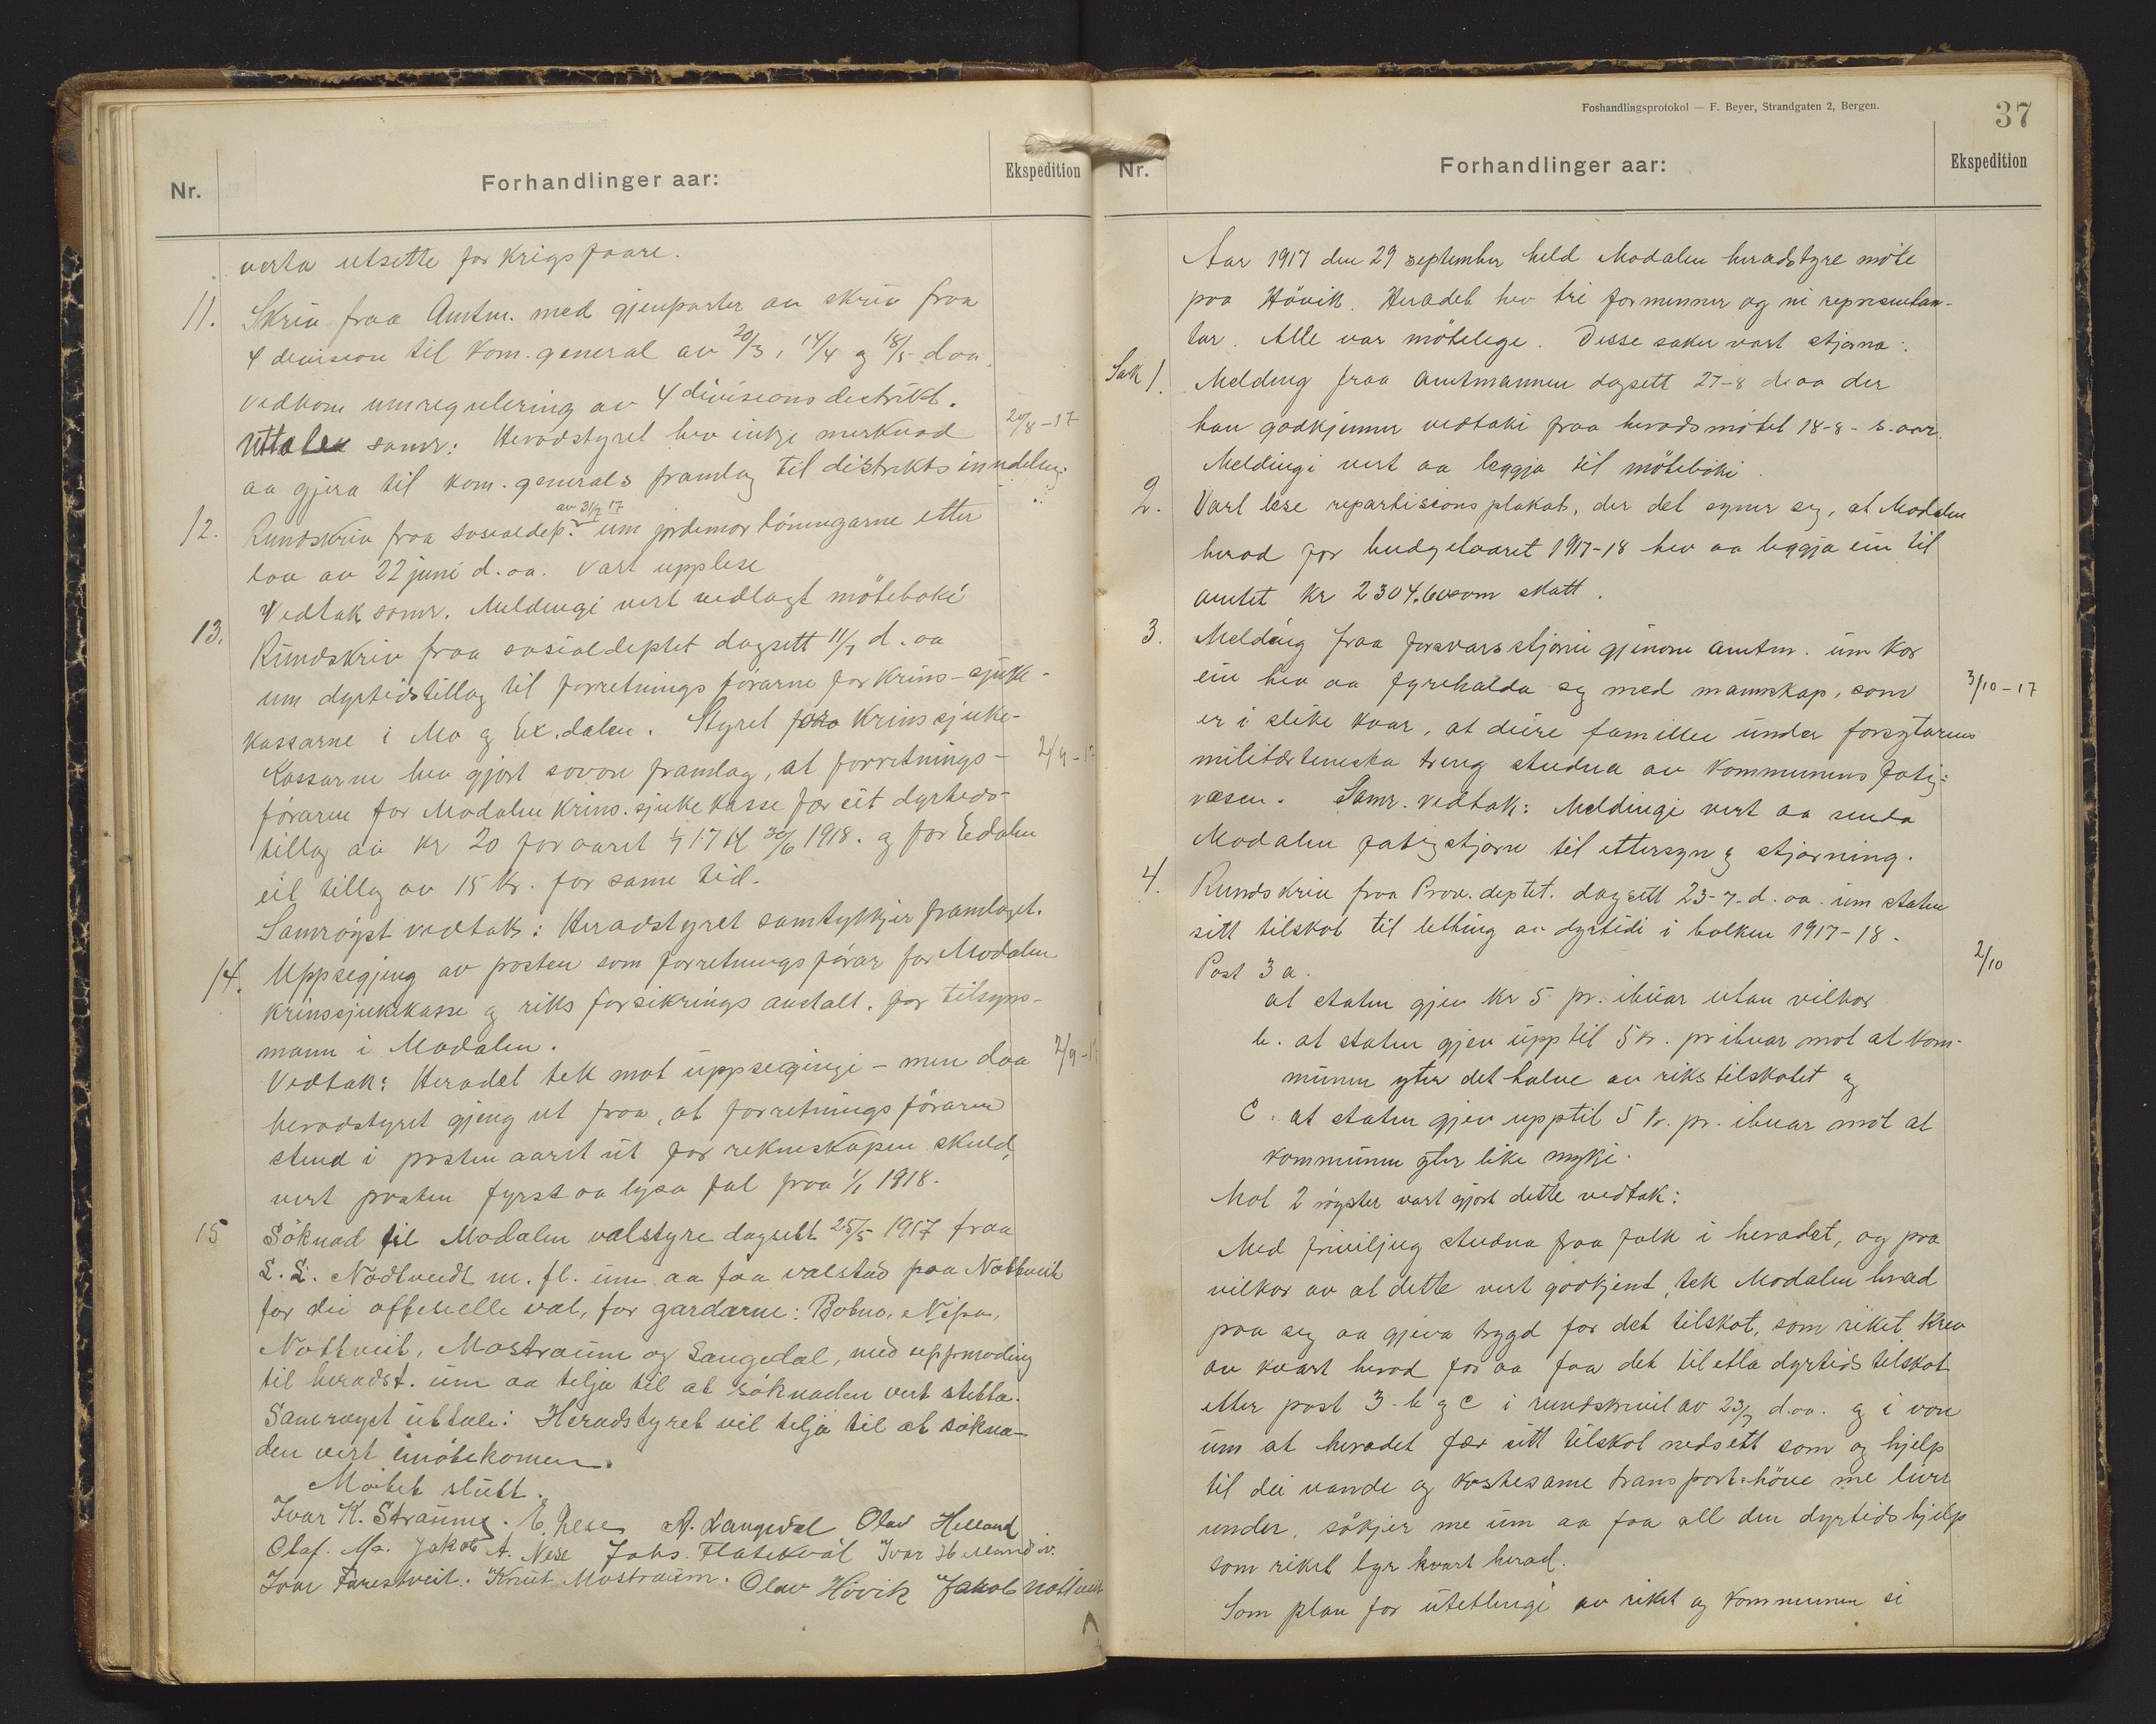 Nr.
Forhandlinger aar:
Ekspedition
verta utsette for krigsfaare.
11. Skriv fraa Amtm. med gjenparter av skriv fraa
4 division til kom. general av 20/3, 14/4 og 18/5 d.aa.
vedkom umregulering av 4 divisions distrikt.
Uttale samr: Heradstyret hev inkje merknad 20/8-17
aa gjera til kom. generals framlag til distriktsinndeling.
12. Rundskriv fraa sosialdep. av 31/7 17 um jordmorløningarne etter
lov av 22 juni d.aa. vart upplese
Vedtak samr. Meldingi vert vedlagt møteboki
13. Rundskriv fraa sosialdeptet dagsett 11/7 d.aa
um dyrtidstillag til forretningsførarne for krins-sjuke-
kassarne i Mo og Ex.dalen. Styret for krinssjuke-
kassarne hev gjort sovore framlag, at forretnings- 2/9-17
føraren for Modalen krins.sjukekasse fær eit dyrtids-
tillag av kr 20 for aaret 1/7 17 til 30/6 1918. og for Edalen
eit tillag av 15 kr. for same tid.
Samrøyst vedtak: Heradstyret samtykkjer framlaget.
14. Uppsegjing av posten som forretningsførar for Modalen
krinssjukekasse og riksforsikringsanstalt. for tilsyns-
mann i Modalen.
Vedtak: Heradet tek mot uppsegjingi - men daa 2/9-17
heradstyret gjeng ut fraa, at forretningsføraren
stend i posten aaret ut for rekneskapen skuld,
vert posten fyrst aa lysa fal fraa 1/1 1918.
15 Søknad til Modalen valstyre dagsett 25/5 1917 fraa
L. L. Nødtvedt m. fl. um aa faa valstad paa Nottveit
for dei offesielle val, for gardarne: Botna, Nipa,
Nottveit, Mostraum og Langedal, med uppmoding
til heradst. um aa telja til at søknaden vert stetta.
Samrøyst uttale: Heradstyret vil telja til at søkna-
den vert imøtekomen.
Møtet slutt.
Ivar K. Straume. E. Nese A. Langedal Olav Helland
Olaf. Mo. Jakob A. Nese Johs. Flatekvål Ivar Helland
Ivar Farestveit. Knut Mostraum. Olav Høvik Jakob Nottveit
Foshandlingsprotokol — F. Beyer, Strandgaten 2, Bergen.
37
Nr.
Forhandlinger aar:
Ekspedition
Aar 1917 den 29 september held Modalen heradstyre møte
paa Høvik. Heradet hev tri formenner og ni representan-
tar. Alle var møtelege. Disse saker vart stjorna:
Sak 1. Melding fraa amtmannen dagsett 27-8 d.aa der
han godkjenner vedtaki fraa heradsmøtet 18-8- s. aar.
Meldingi vert aa leggja til møteboki.
2. Vart lese repartisionsplakat, der det syner seg, at Modalen
herad for budgetaaret 1917-18 hev aa leggja inn til
amtet kr 2304.60 som skatt.
3. Melding fraa forsvarsstjorni gjenom amtm. um kor
ein hev aa fyrehalda seg med mannskap, som 3/10-17
er i slike kaar, at deire famillie under forsytarens
militærteneska treng studna av kommunens fatig-
vesen. Samr. vedtak: Meldingi vert aa senda
Modalen fatigstjorn til ettersyn og stjorning.
4. Rundskriv fraa Prov. deptet. dagsett 23-7- d.aa. um staten
sitt tilskot til letting av dyrtidi i bolken 1917-18.
Post 3 a. 2/10
at staten gjev kr 5 pr. ibuar utan vilkor
b. at staten gjev upp til 5 kr. pr ibuar mot at kom-
munen yter det halve av rikstilskotet og
c. at staten gjev upptil 5 kr. pr. ibuar mot at
kommunen yter like mykje.
Mot 2 røyster vart gjort dette vedtak:
Med friviljug studna fraa folk i heradet, og paa
vilkor av at dette vert godkjent, tek Modalen herad
paa seg aa gjeva trygd for det tilskot, som riket krev
av kvart herad for aa faa det tiletla dyrtidstilskot
etter post 3 - b og c i rundskrivil av 23/7 d.aa. og i von
um at heradet fær sitt tilskot nedsett som og hjelp
til dei vande og kostesame transport-høve me liver
under, søkjer me um aa faa all den dyrtidshjelp
som riket byr kvart herad.
Som plan for utetlingi av riket og kommunen si